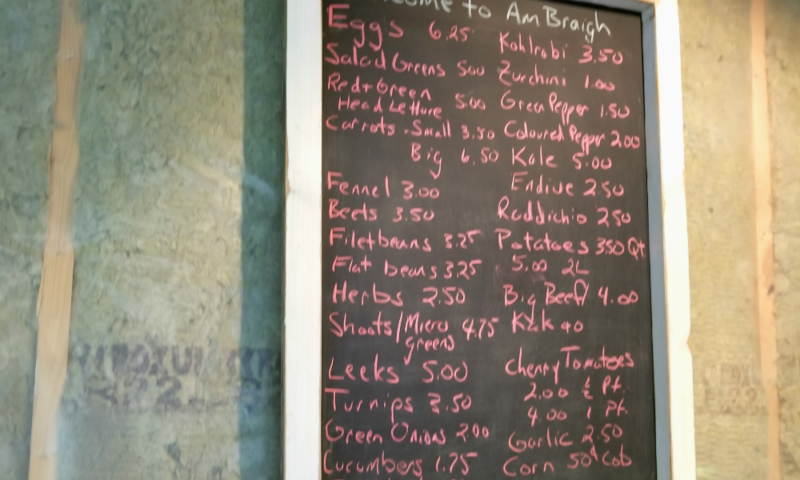 come to AmBraigh
Eggs 6.25
Salad Greens 500
Red + Green
Head Lettuce 500
Carrots . Small 3.50
Big 6.50
Fennel 3.00
Beets 3.50
Filet beans 3.25
Flat beans 3.25
Herbs 2.50
Shoots/Micro greens 4.75
Leeks 5.00
Turnips 3.50
Green Onions 2.00
Cucumbers 1.75
Kohlrabi 3.50
Zucchini 1.00
Green Pepper 1.50
Coloured Pepper 2.00
Kale 5.00
Endive 2.50
Raddichio 2.50
Potatoes 350 Qt
5.00 2L
Big Beef/ 4.00
Cherry Tomatoes
2.00 ½ Pt.
4.00 1 Pt.
Garlic 2.50
Corn 50¢ Cob